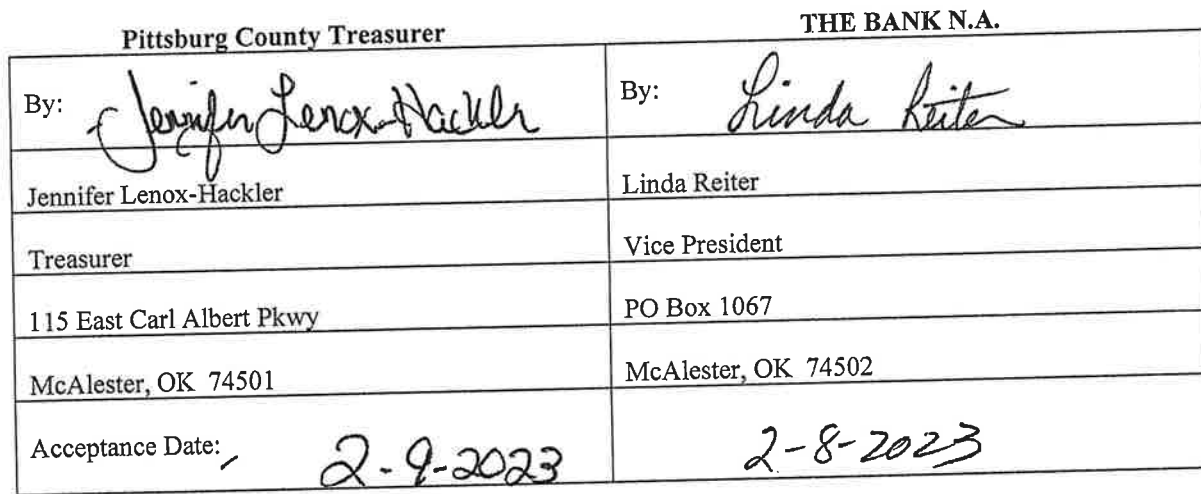 Pittsburg County Treasurer THE BANK N.A.
By: Jennifer Lenox-Hackler By: Linda Reiter
Jennifer Lenox-Hackler Linda Reiter
Treasurer Vice President
115 East Carl Albert Pkwy PO Box 1067
McAlester, OK 74501 McAlester, OK 74502
Acceptance Date: 2-9-2023 2-8-2023